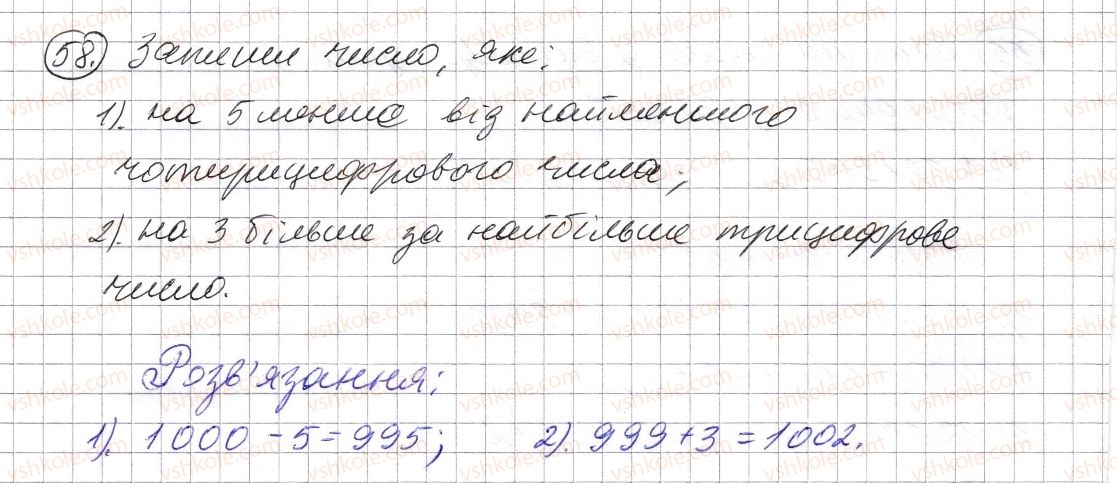 58. Запиши число, яке:
1). на 5 менше від найменшого
чотирицифрового числа;
2). на 3 більше за найбільше трицифрове
число.
Розв'язання:
1). 1000 - 5 = 995; 2). 999 + 3 = 1002.